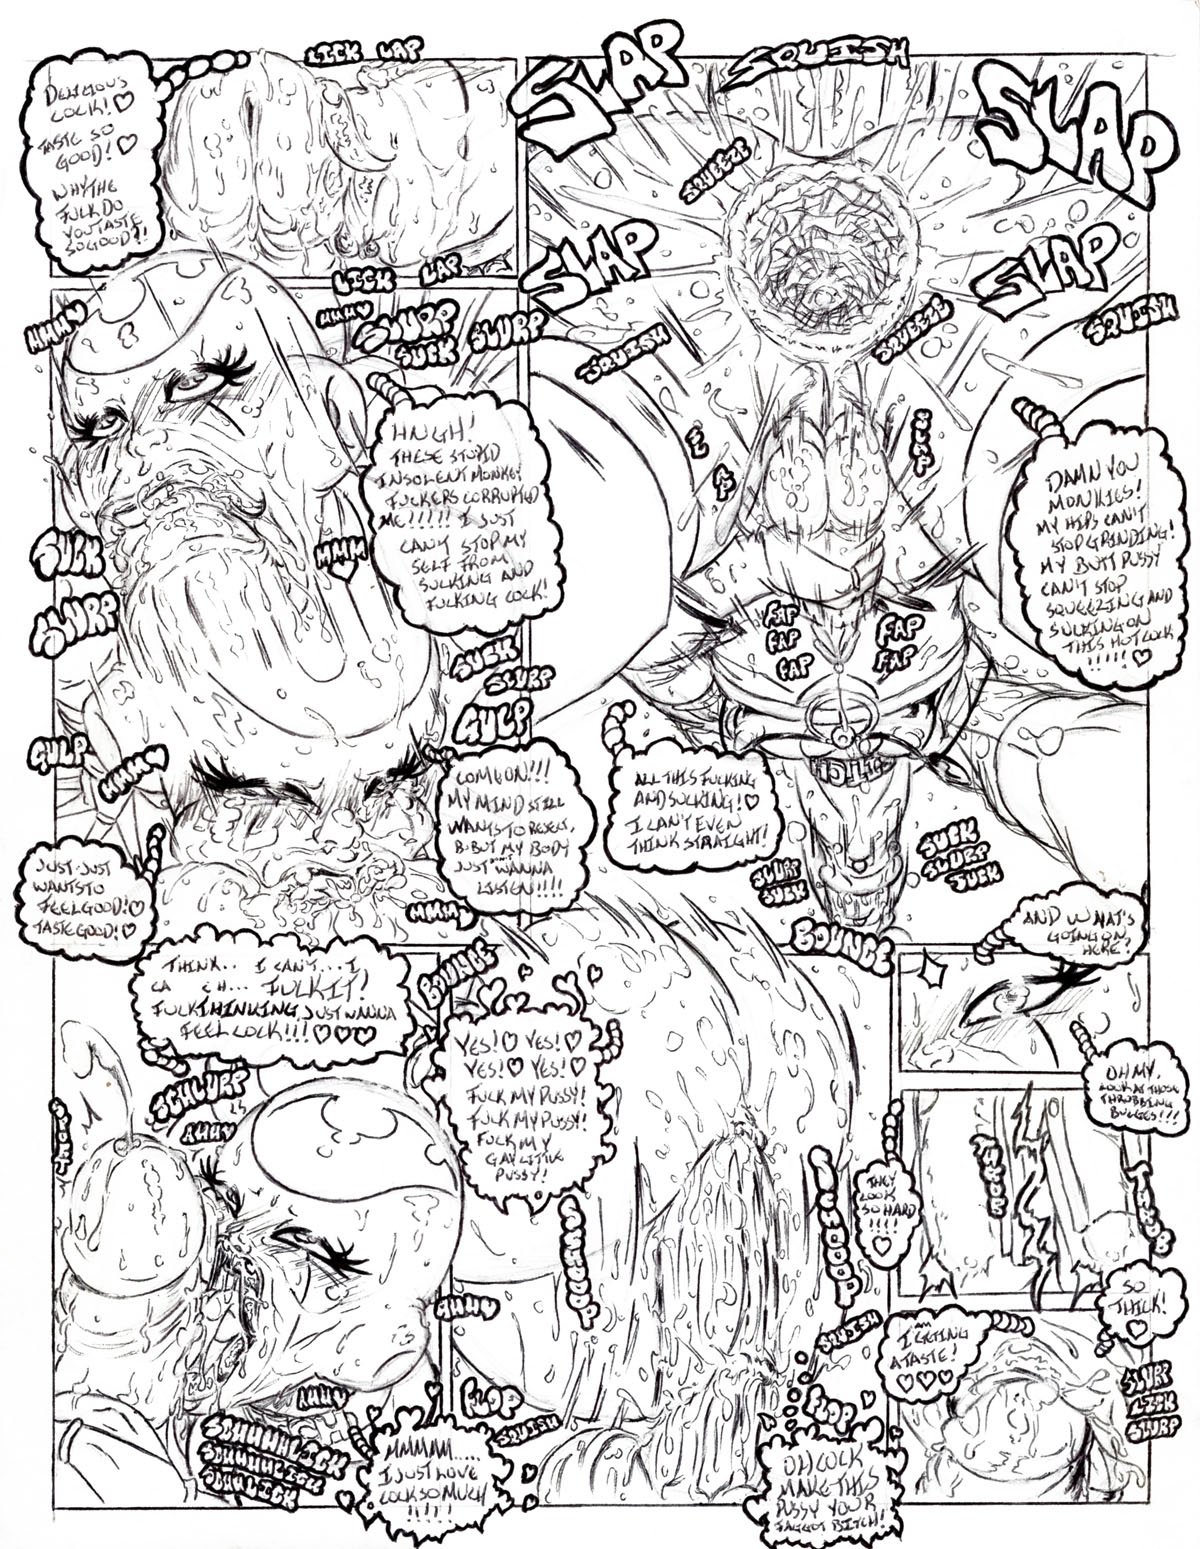 DELICIOUS
COCK!♡
TASTE SO
GOOD!♡
WHY THE
FUCK DO
YOU TASTE
SO GOOD?!
LICK LAP
LICK LAP
SLAP
SQUISH
SLAP
SQUEEZE
SLAP
SLAP
SQUISH
SQUEEZE
SQUISH
SLURP
SUCK SLURP
HNGH!
THESE STUPID
INSOLENT MONKEY
FUCKERS CORRUPTED
ME!!!!! I JUST
CAN'T STOP MY
SELF FROM
SUCKING AND
FUCKING COCK!
SUCK
SLURP
MMM
SUCK
SLURP
GULP
GULP
DAMN YOU
MONKIES!
MY HIPS CAN'T
STOP GRINDING!
MY BUTT PUSSY
CAN'T STOP
SQUEEZING AND
SUCKING ON
THIS HOT COCK
!!!!!♡
FAP
FAP
FAP
FAP
FAP
COME ON!!!
MY MIND STILL
WANTS TO REJECT,
B-BUT MY BODY
JUST WANNA
LISTEN!!!!
ALL THIS FUCKING
AND SUCKING!♡
I CAN'T EVEN
THINK STRAIGHT!
SLURP
SUCK
SUCK
SLURP
SUCK
JUST-JUST
WANTS TO
FEEL GOOD!♡
TASTE GOOD!♡
MMM
THINK.. I CAN'T...I
FUCK IT!
FUCK THINKING, JUST WANNA
FEEL COCK!!!♡♡♡
BOUNCE
BOUNCE
YES!♡ YES!♡
YES!♡ YES!♡
FUCK MY PUSSY!
FUCK MY PUSSY!
FUCK MY
GAY LITTLE
PUSSY!
AND WHAT'S
GOING ON
HERE?
OH MY,
LOOK AT THOSE
THROBBING
BULGES!!!
THEY
LOOK
SO HARD
!!!!
♡
SO
THICK!
♡
AM
I GETTING
A TASTE!
♡♡♡
SLURP
LICK
SLURP
SCHLURP
SQUISH
FLOP
SQUISH
FLOP
MMMMM.....
I JUST LOVE
COCK SO MUCH
!!!!!
OH COCK
MAKE THIS
PUSSY YOUR
FAGGOT BITCH!